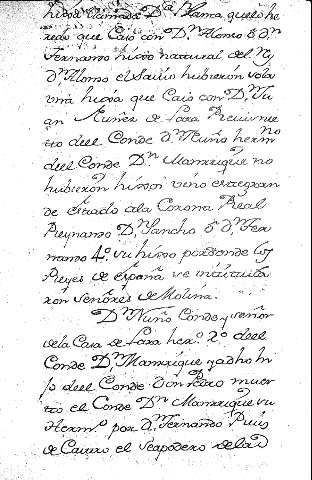 hixa llamada D.ª Blanca, quel he
redo que Caso con D.ⁿ Alonso ô d.ⁿ
Fernando hixo natural del Rey
d.ⁿ Alonso el Savio hubieron sola
una hixa que Caso con D.ⁿ Ju
an Nuñez de Lara Revisnie
to deel Conde d.ⁿ Nuño herm.ⁿᵒ
deel Conde D.ⁿ Manrrique no
hubieron hixos vino este gran
de estado ala Corona Real
Reynando D.ⁿ Sancho ô d.ⁿ Fer
nando 4.º su hixo por donde los
Reyes de españa se intitula
ron señores de Molina.
D.ⁿ Nuño Conde y señor
dela Casa de Lara her.º 2.º deel
Conde D.ⁿ Manrrique ya dho hi
jo deel Conde don Pedro muer
to el Conde D.ⁿ Manrrique su
Herm.º por d.ⁿ Fernando Ruis
de Castro el se apodero dela